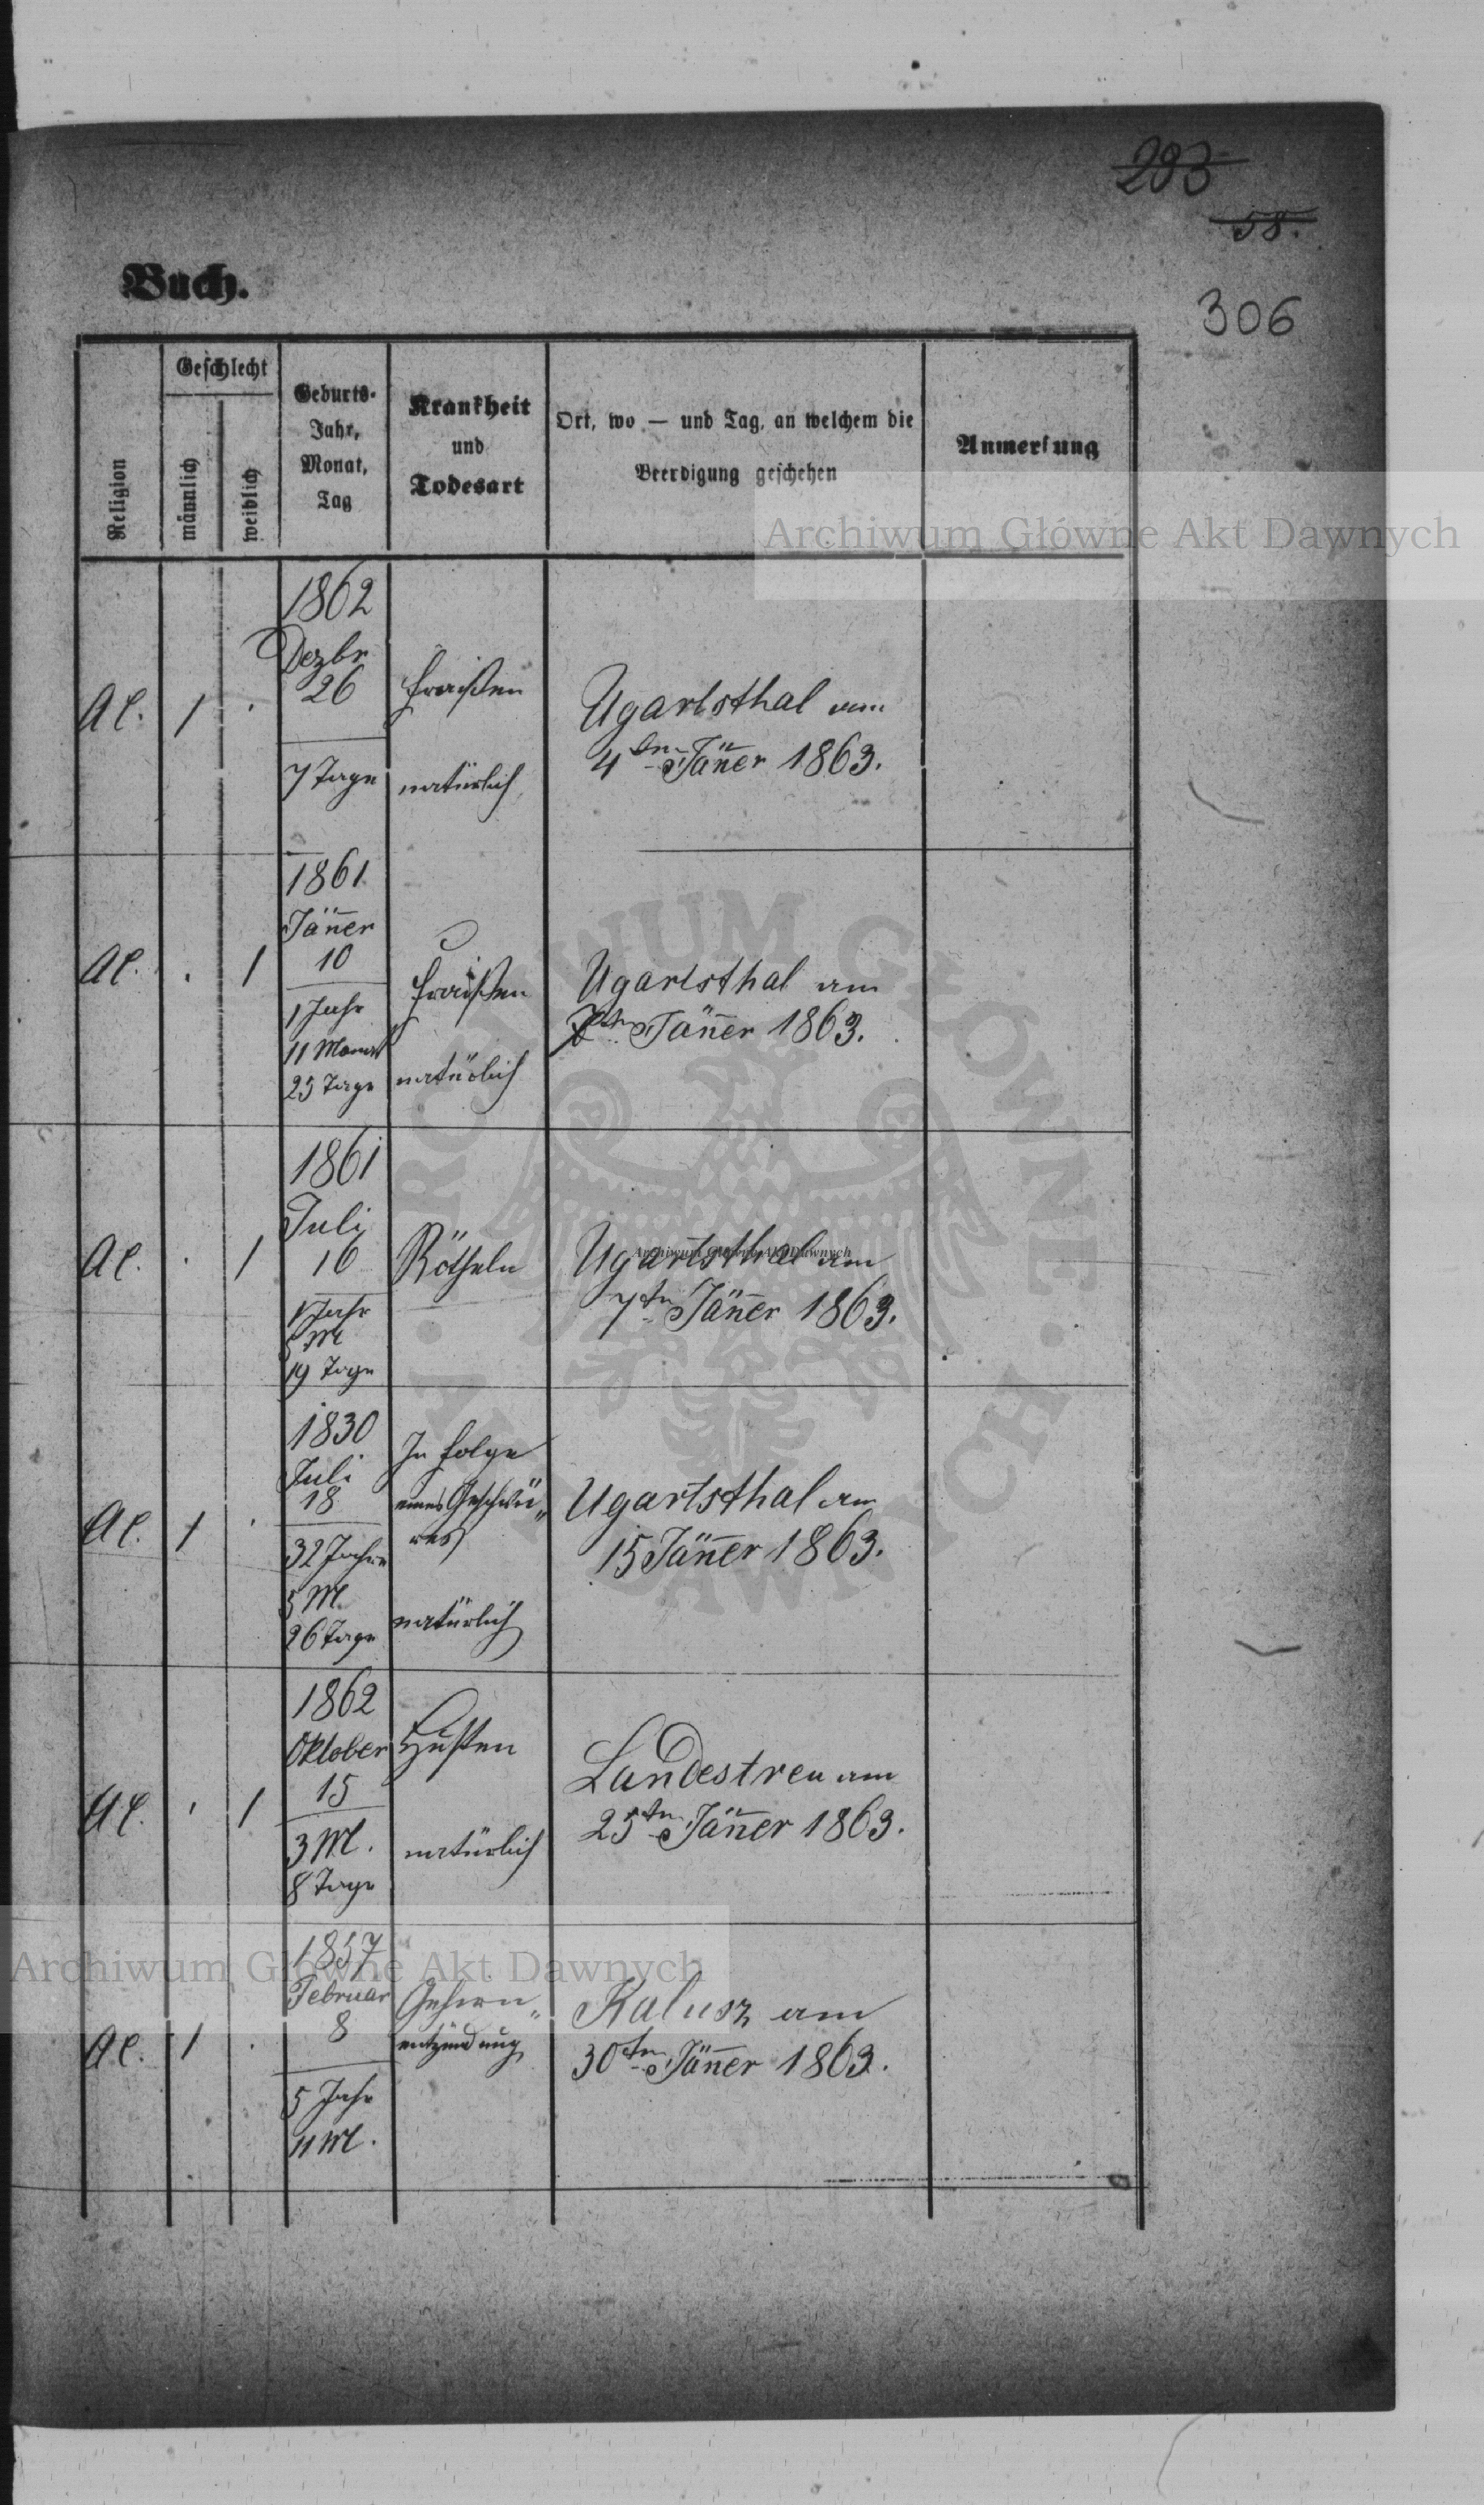 293
58.
306
Buch.
Religion
Geschlecht
männlich
weiblich
Geburts-
Jahr,
Monat,
Tag
Krankheit
und
Todesart
Ort, wo — und Tag, an welchem die
Beerdigung geschehen
Anmerkung
Archiwum Główne Akt Dawnych
1862
Dezbr
26
7 Tage
AC. 1 .
Fraißen
natürlich
Ugartsthal am
4ten Jäner 1863.
1861
Jäner
10
1 Jahr
11 Monat
25 Tage
AC. . 1
Fraißen
natürlich
Ugartsthal am
7ten Jäner 1863.
1861
Juli
16
1 Jahr
5 M
19 Tage
AC. . 1
Rötheln
Ugartsthal am
7ten Jäner 1863.
Archiwum Główne Akt Dawnych
1830
Juli
18
32 Jahre
5 M.
26 Tage
AC. 1 .
In Folge
eines Geschwü„
res
natürlich
Ugartsthal am
15 Jäner 1863.
1862
Oktober
15
3 M.
8 Tage
AC. . 1
Husten
natürlich
Landestreu am
25ten Jäner 1863.
1857
Februar
8
5 Jahr
11 M.
AC. 1 .
Gehirn„
entzündung
Kalusz am
30ten Jäner 1863.
Archiwum Główne Akt Dawnych
ARCHIWUM GŁÓWNE · AKT DAWNYCH ·